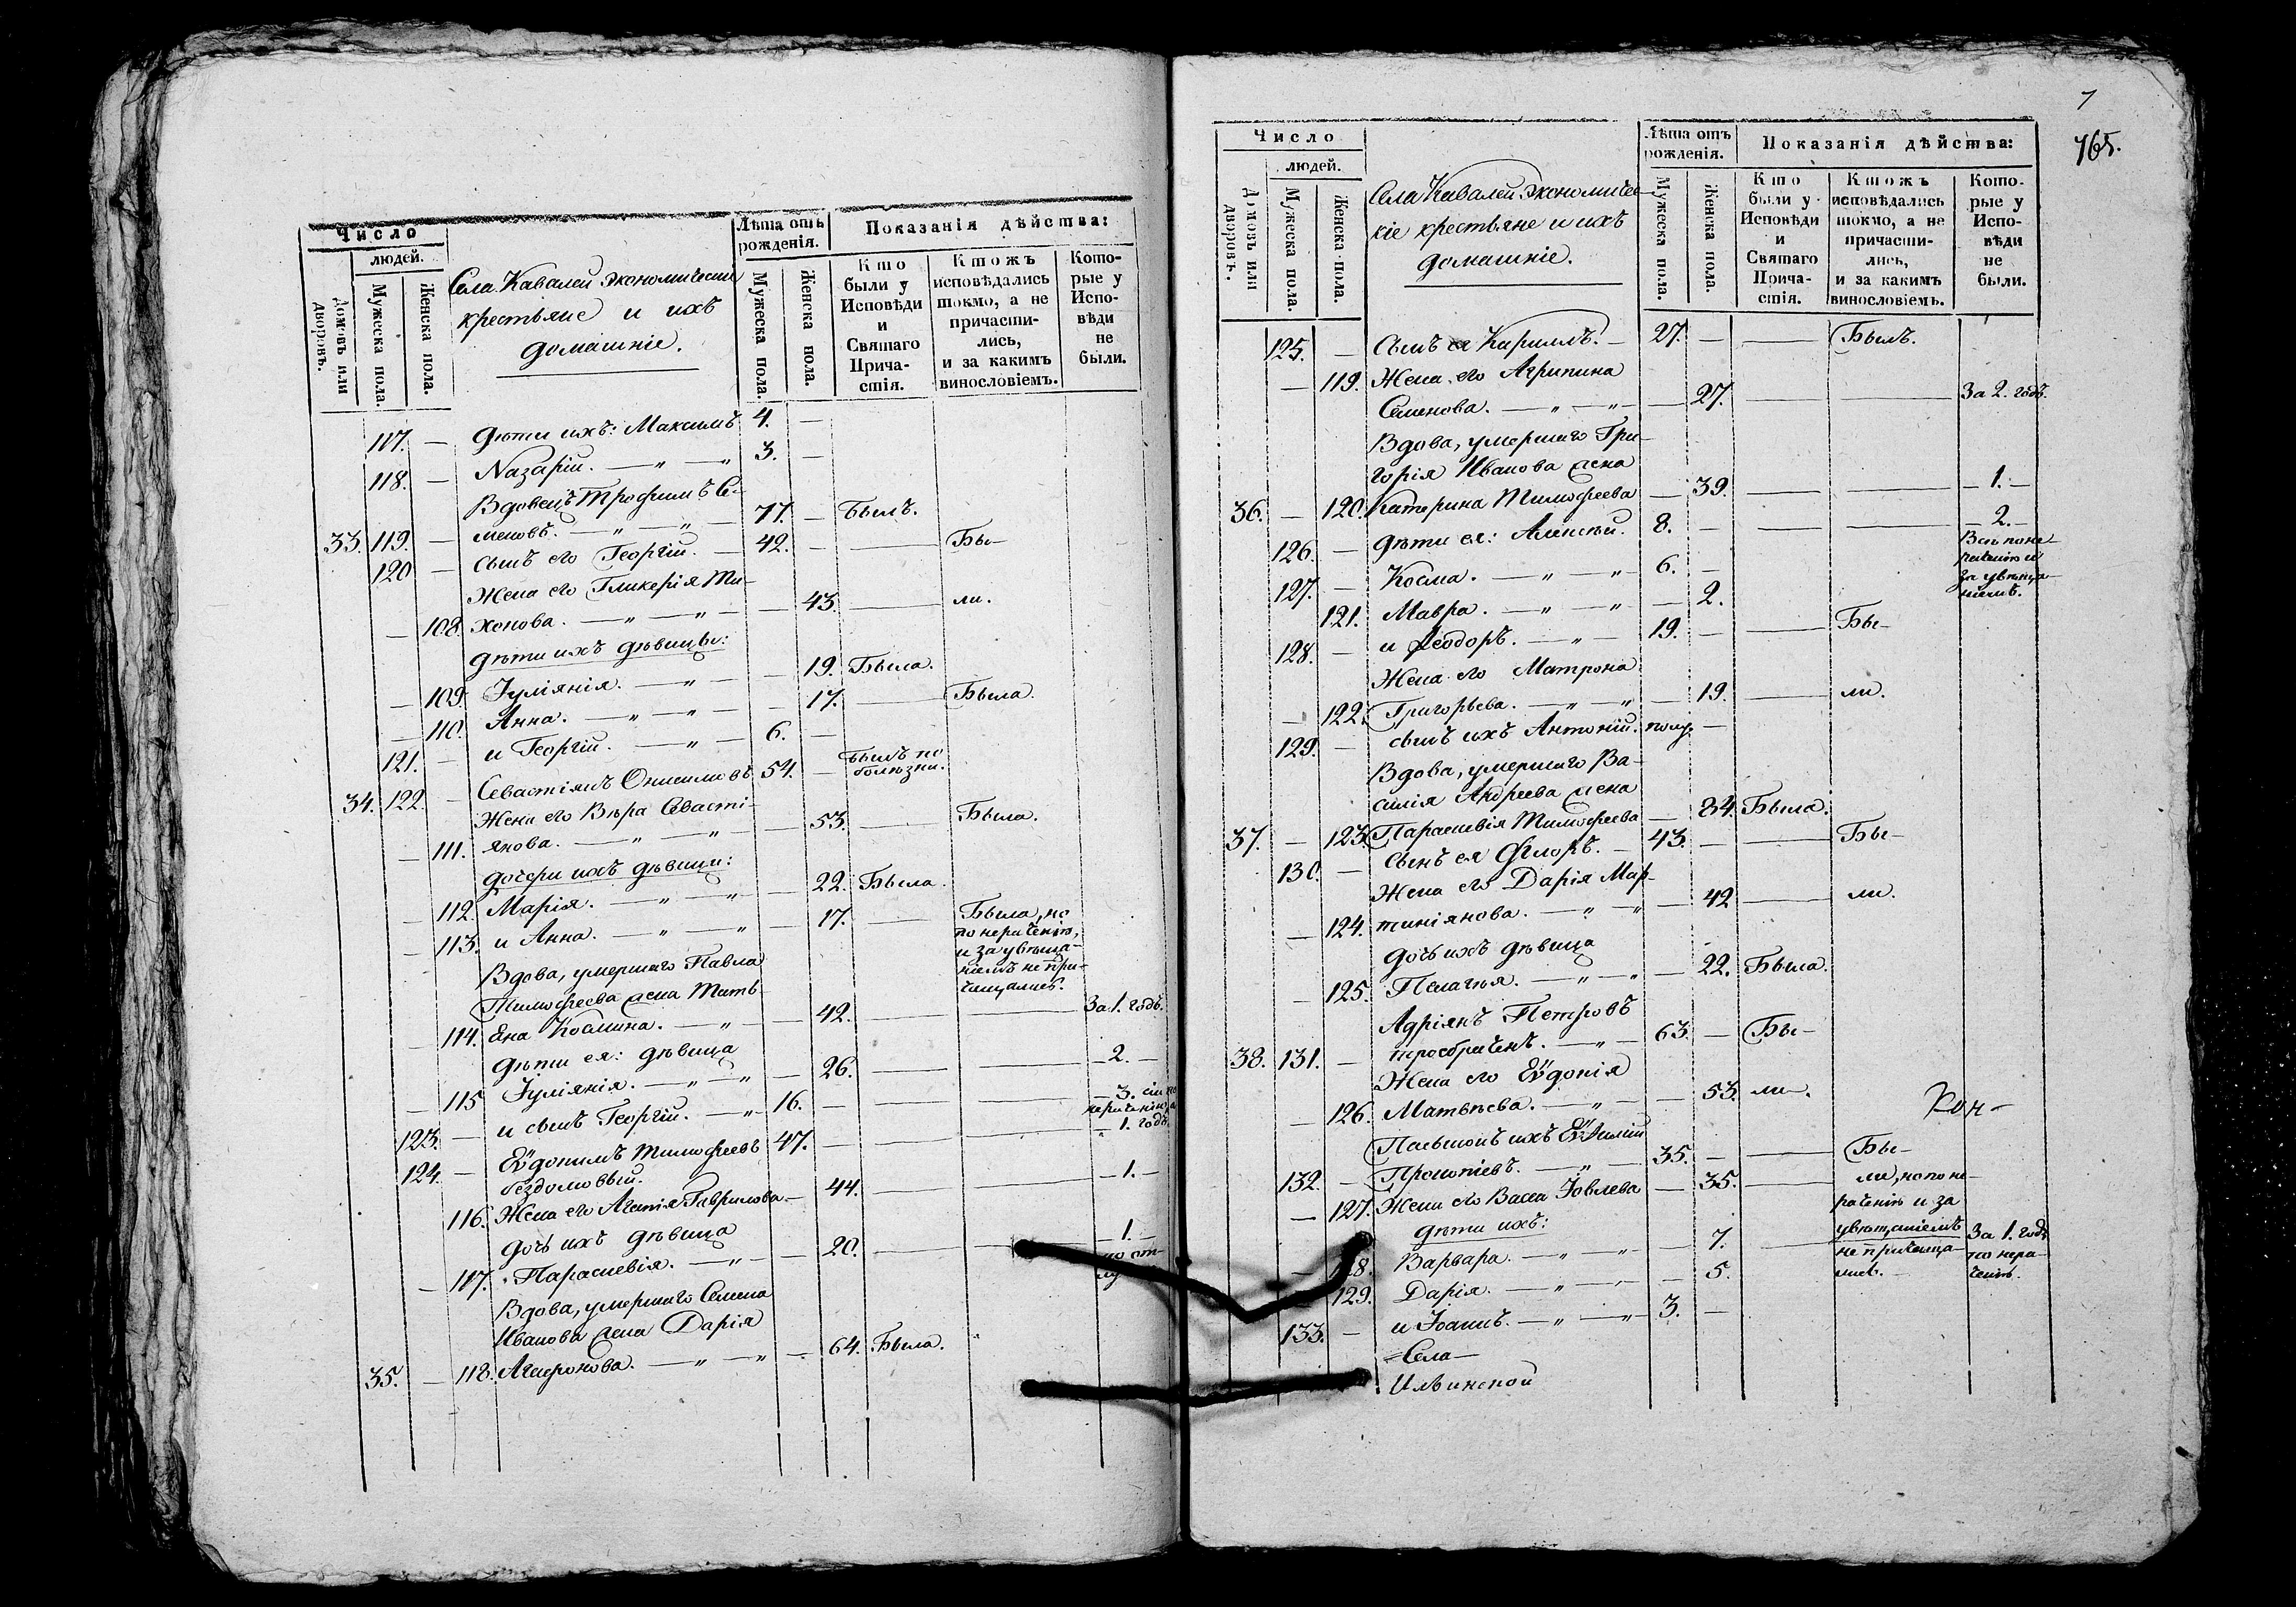 Число
людей.
Домовъ или дворовъ.
Мужеска пола.
Женска пола.
Села Кавалей Экономически
крестьяне и ихъ
домашніе.
Лѣта отъ рожденія.
Мужеска пола.
Женска пола.
Показанія дѣйства:
Кто были у Исповѣди и Святаго Прича-стія.
Ктожъ исповѣдались токмо, а не причасти-лись, и за какимъ винословіемъ.
Кото-рые у Испо-вѣди не были.
117. — Дѣти ихъ: Максимъ 4. —
118. — Назарій. — „ — „ 3. —
Вдовецъ Трофимъ Се-
33. 119. — меновъ. — „ — „ — 77. — Былъ.
120 — сынъ его Георгій. — 42. — — Бы-
Жена его Гликерія Ти-
— 108. хонова. — „ — „ — — 43. — ли.
дѣти ихъ дѣвицы:
— 109. Іуліянія. — „ — — 19. Была.
— 110. Анна. — „ — „ — — 17. — Была.
121. — и Георгій. — „ — 6. —
34. 122. — Севастіянъ Онисимовъ 54. — Былъ по болѣзни.
Жена его Вѣра Севасті-
— 111. янова. — „ — „ — — 53. — Была.
дочери ихъ дѣвицы:
— 112. Марія. — „ — „ — 22. Была.
— 113. и Анна. — „ — „ — 17. — Была, но
по нераченію,
и за увѣща-
ніемъ не при-
чащалась.
Вдова, умершаго Павла
Тимофеева жена Тать-
— 114. яна Космина. — „ — — 42. — — За 1. годъ.
дѣти ея: дѣвица
— 115 Іуліянія. — „ — „ — 26. — — — 2. —
123. — и сынъ Георгій. — „ 16. — — — — 3. сіи по
нераченію
124. — Евдокимъ Тимофеевъ 47. — — — „ 1. годъ
бездомовый.
116. Жена его Агаѳія Гаврилова. — 44. — — — 1. —
дочь ихъ дѣвица
— 117. Параскевія. — „ — — 20. — — — 1. —
по от-
Вдова, умершаго Семена
Иванова жена Дарія
35. — 118. Агафонова. — „ — „ — 64. Была.
7
765.
Число
людей.
Домовъ или дворовъ.
Мужеска пола.
Женска пола.
Села Кавалей Экономичес-
кіе крестьяне и ихъ
домашніе.
Лѣта отъ рожденія.
Мужеска пола.
Женска пола.
Показанія дѣйства:
Кто были у Исповѣди и Святаго Прича-стія.
Ктожъ исповѣдались токмо, а не причасти-лись, и за какимъ винословіемъ.
Кото-рые у Испо-вѣди не были.
125. — Сынъ ея Кириллъ. — 27. — — Былъ.
— 119. Жена его Агрипина
Семенова. — „ — „ — 27. — — За 2. годъ.
Вдова, умершаго Гри-
горія Иванова жена
36. — 120. Катерина Тимофеева — 39. — — — 1. —
126. — дѣти ея: Алексѣй. 8. — — — — 2. —
Всѣ по не-
раченію и
за увѣща-
ніемъ.
127. — Косма. — „ — „ 6. —
121. Мавра. — „ — „ — 2.
128. — и Ѳеодоръ. — „ — 19. — — Бы-
Жена его Матрона
— 122. Григорьева. — „ — „ — 19. — ли.
129. — сынъ ихъ Антоній. полу. —
Вдова, умершаго Ва-
силія Андреева жена
37. — 123. Параскевія Тимофеева — 84. Была.
130. — Сынъ ея Флоръ. — 43. — — Бы-
Жена его Дарія Мар-
— 124. тиніянова. — „ — „ — 42 — ли.
дочь ихъ дѣвица
— 125. Пелагѣя. — „ — „ — 22. Была.
Адріянъ Петровъ
38. 131. — 63. — Бы-
Жена его Евдокія
— 126. Матвѣева. — „ — — 53. ли.
Кон-
132. — Прокопіевъ. — „ — 35. — — Бы-
— 127. Жена его Васса Іовлева — 35. — ли, но по не-
раченію и за
увѣщаніемъ
не причаща-
лись.
дѣти ихъ:
128. Варвара. — „ — „ — 7. — За 1. годъ
по нера-
ченію.
129. Дарія. — „ — — 5.
133. — и Іоаннъ. — „ — „ 3. —
Села
Ильинской